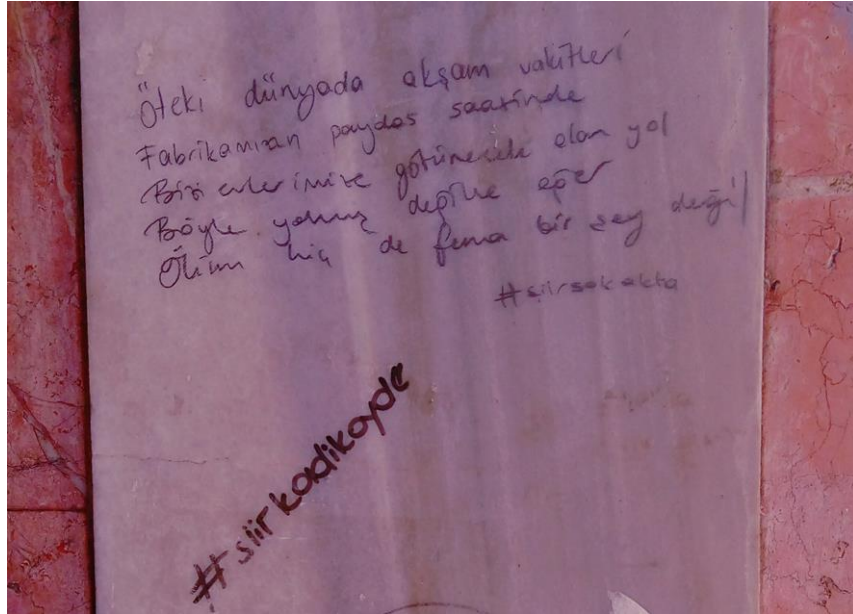 Öteki dünyada akşam vakitleri
Fabrikamızın paydos saatinde
Bizi evlerimize götürecek olan yol
Böyle yokuş değilse eğer
Ölüm hiç de fena bir şey değil
#siirsokakta
#siirkadikoyde